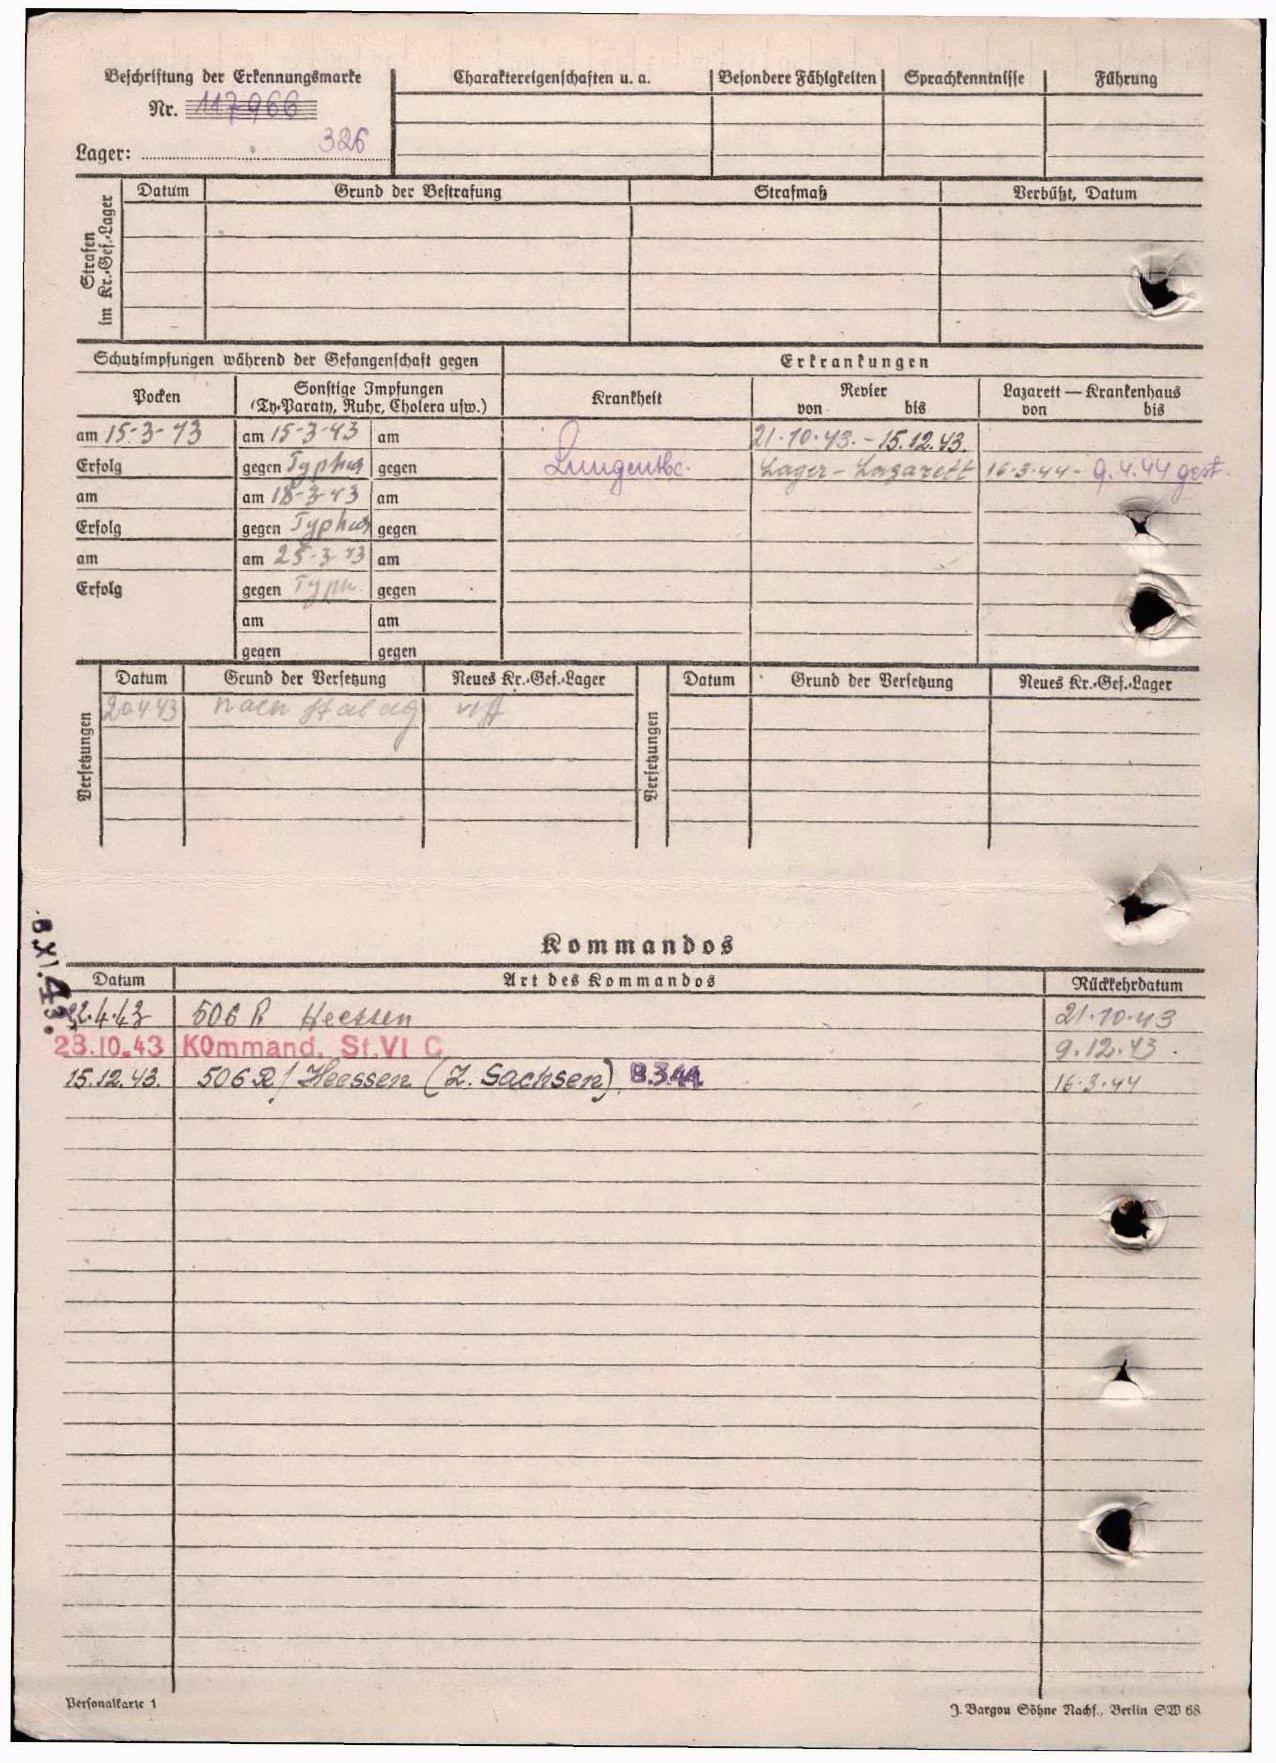 Beschriftung der Erkennungsmarke
Nr. 117966
326
Lager:
Charaktereigenschaften u. a. Besondere Fähigkeiten Sprachkenntnisse Führung
Strafen im Kr.-Gef.-Lager
Datum Grund der Bestrafung Strafmaß Verbüßt, Datum
Schutzimpfungen während der Gefangenschaft gegen Erkrankungen
Pocken Sonstige Impfungen (Ty.-Paraty, Ruhr, Cholera usw.) Krankheit Revier von bis Lazarett — Krankenhaus von bis
am 15-3-43 am 15-3-43 am 21.10.43. - 15.12.43.
Erfolg gegen Typhus gegen Lungentbc. Lager - Lazarett 16.3.44 - 9.4.44 gest.
am am 18-3-43 am
Erfolg gegen Typhus gegen
am am 25-3-43 am
Erfolg gegen Typh. gegen
am am
gegen gegen
Versetzungen
Datum Grund der Versetzung Neues Kr.-Gef.-Lager
20.4.43 nach Stalag VI A
Versetzungen
Datum Grund der Versetzung Neues Kr.-Gef.-Lager
8.XI.43.
Kommandos
Datum Art des Kommandos Rückkehrdatum
22.4.43 506 R Heessen 21.10.43
28.10.43 KOmmand. St.VI C 9.12.43.
15.12.43. 506 R / Heessen (Z. Sachsen) 8.3.44 16.3.44
Personalkarte 1
J. Bargou Söhne Nachf., Berlin SW 68